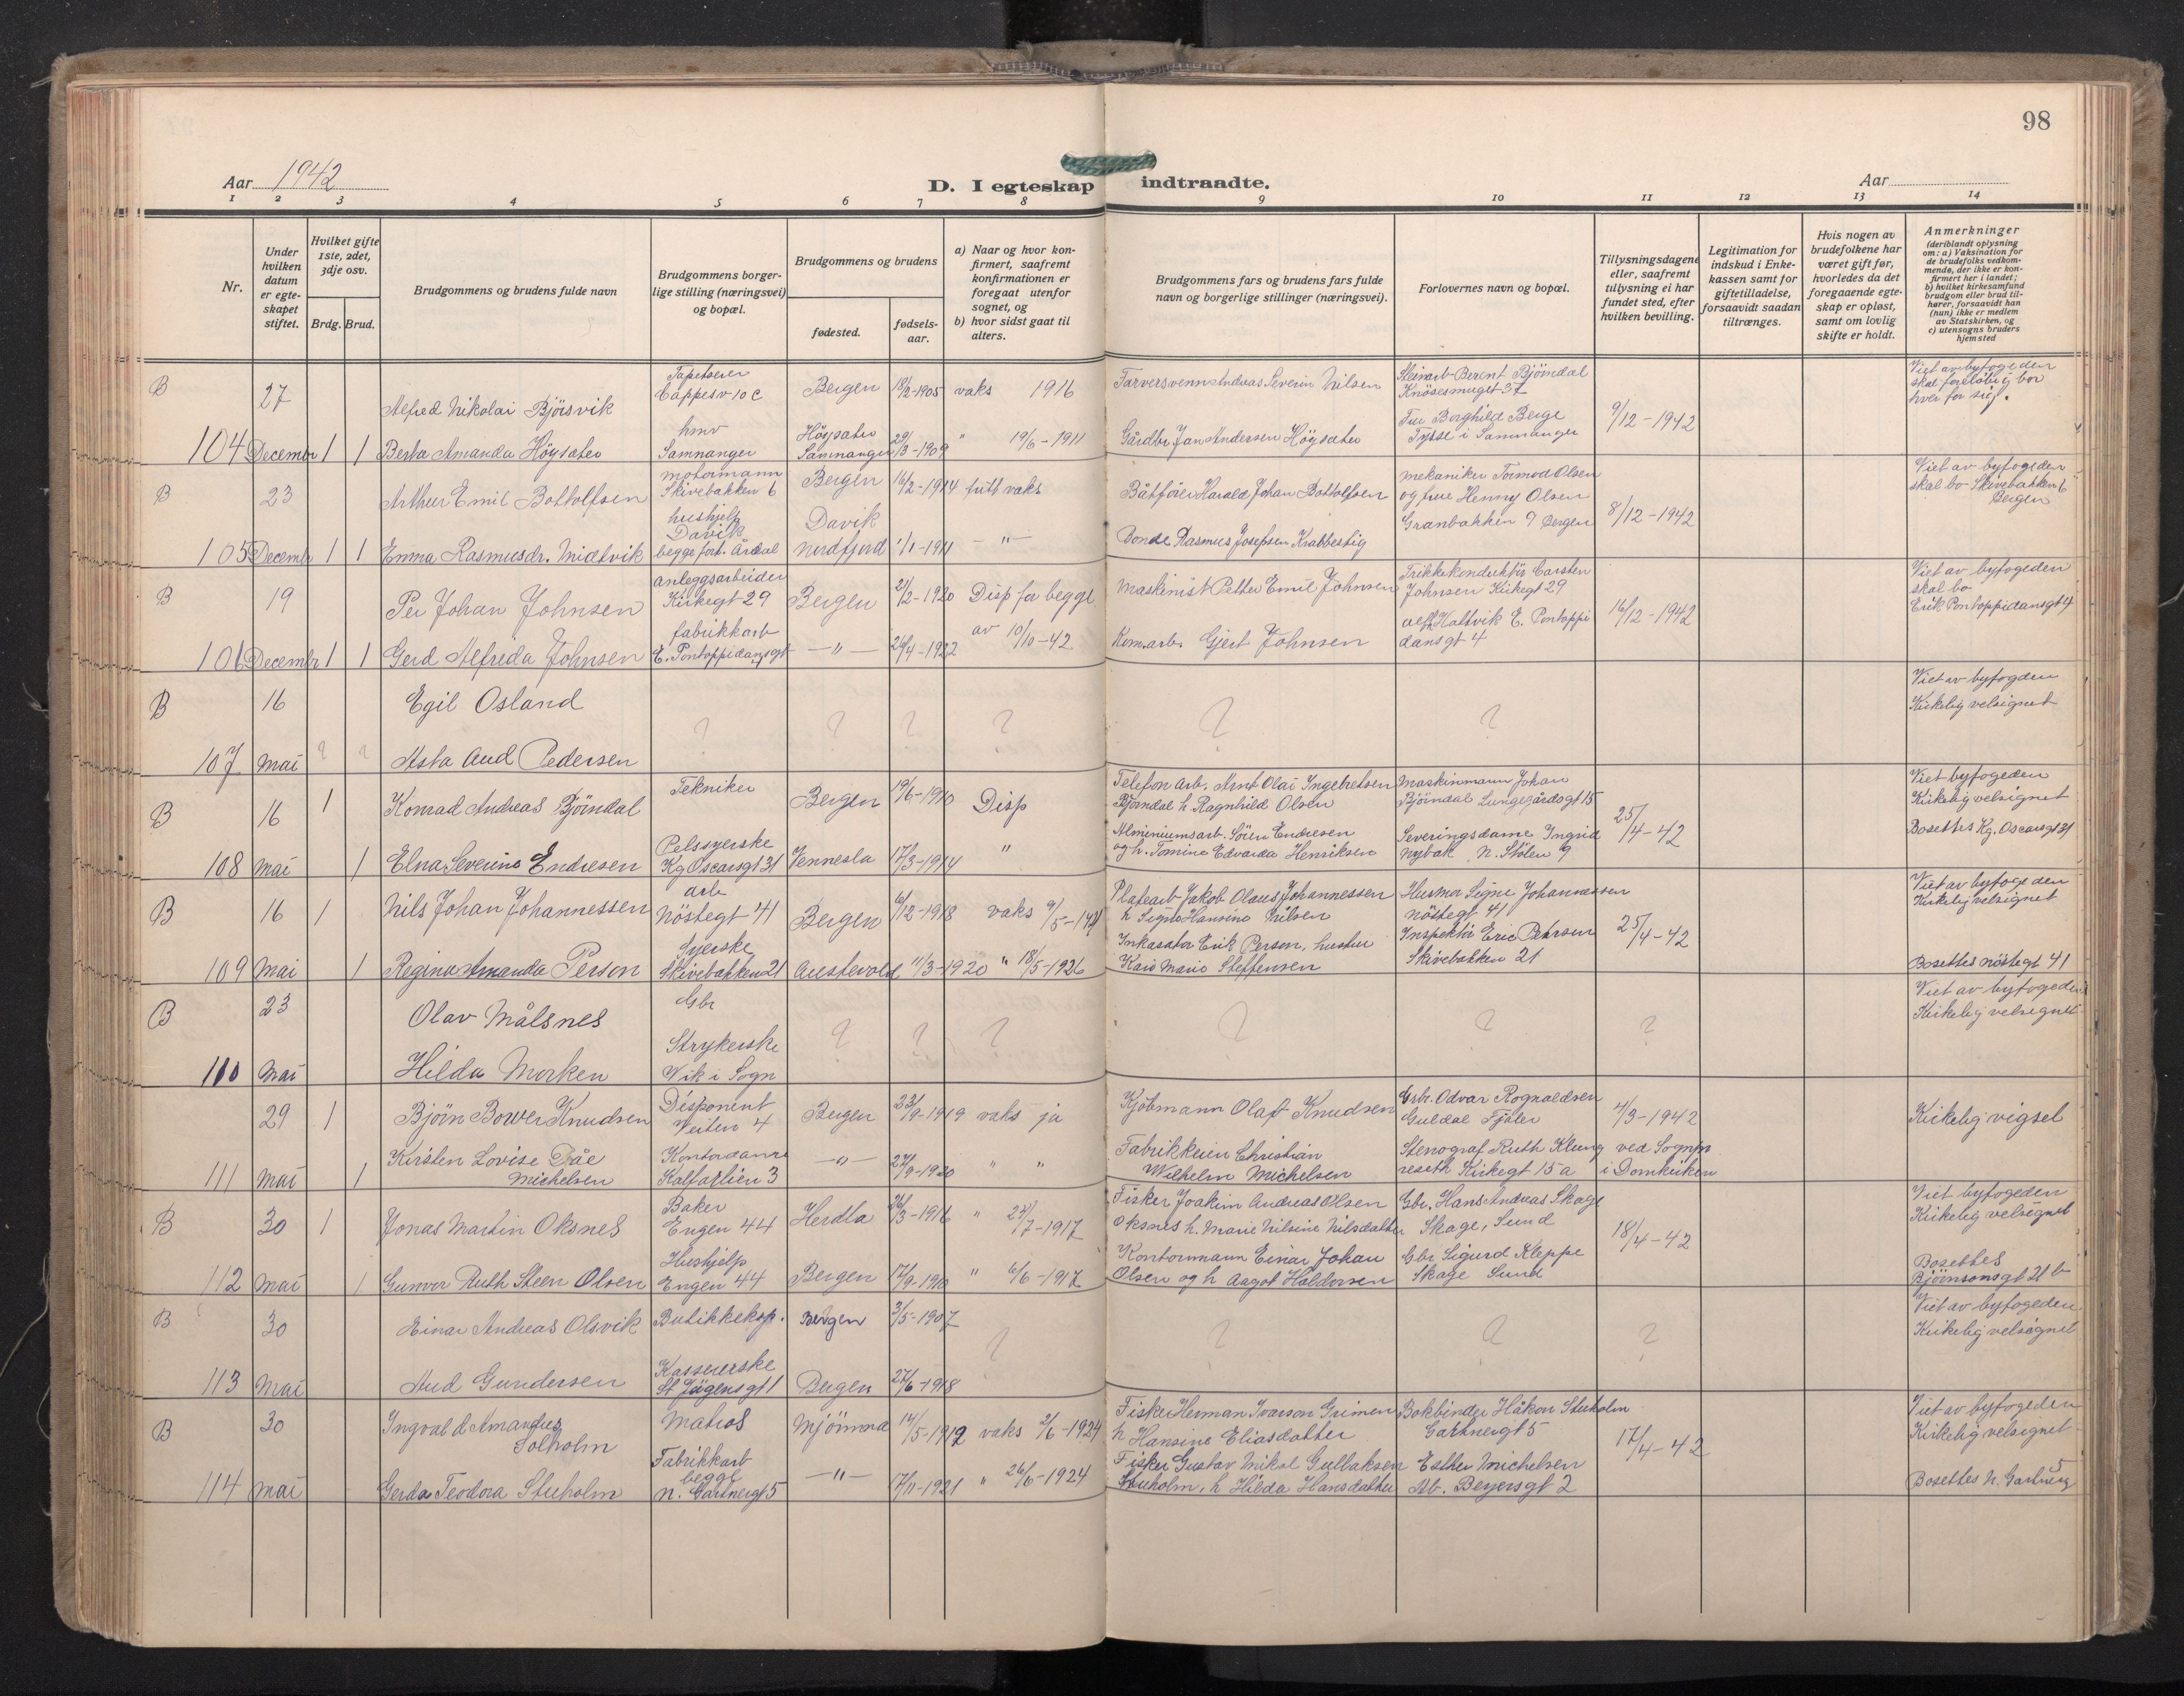 98
Aar 1942
D. I egteskap indtraadte.
Aar
1 2 3 4 5 6 7 8 9 10 11 12 13 14
Nr.
Under hvilken datum er egteskapet stiftet.
Hvilket gifte 1ste, 2det, 3dje osv.
Brdg. Brud.
Brudgommens og brudens fulde navn
Brudgommens borgerlige stilling (næringsvei) og bopæl.
Brudgommens og brudens
fødested.
fødselsaar.
a) Naar og hvor konfirmert, saafremt konfirmationen er foregaat utenfor sognet, og
b) hvor sidst gaat til alters.
Brudgommens fars og brudens fars fulde navn og borgerlige stillinger (næringsvei).
Forlovernes navn og bopæl.
Tillysningsdagene eller, saafremt tillysning ei har fundet sted, efter hvilken bevilling.
Legitimation for indskud i Enkekassen samt for giftetilladelse, forsaavidt saadan tiltrænges.
Hvis nogen av brudefolkene har været gift før, hvorledes da det foregaaende egteskap er opløst, samt om lovlig skifte er holdt.
Anmerkninger
(deriblandt oplysning om: a) Vaksination for de brudefolks vedkommende, der ikke er konfirmert her i landet; b) hvilket kirkesamfund brudgom eller brud tilhører, forsaavidt han (hun) ikke er medlem av Statskirken, og c) utensogns bruders hjemsted
B 27 Alfred Nikolai Bjørsvik Tapetserer Cappesv 10 c Bergen 18/2-1905 vaks 1916 Farversvenn Andreas Severin Nilsen Steinarb Berent Bjørndal Knøsesmuget 37 Viet av byfogeden skal foreløbig bo hver for sig.
104 Decembr 1 1 Berta Amanda Høysæter hmv Samnanger Høysæter Samnanger 29/3-1909 " 19/6-1911 Gårdbr Jan Andersen Høysæter Fru Borghild Berge Tysse i Samnanger 9/12-1942
B 23 Arthur Emil Bottolfsen motormann Skivebakken 6 Bergen 16/2-1914 fullt vaks Båtfører Harald Johan Bottolfsen mekaniker Tormod Olsen og frue Henny Olsen Granbakken 9 Bergen 8/12-1942 Viet av byfogeden skal bo Skivebakken 6 Bergen
105 Decembr 1 1 Emma Rasmusdr. Midtvik hushjelp Davik begge fort. Årdal Davik Nordfjord 1/1-1911 -"- Bonde Rasmus Josefsen Krabbestig
B 19 Per Johan Johnsen anleggsarbeider Kirkegt 29 Bergen 21/2-1920 Disp for begge av 10/10-42 Maskinist Petter Emil Johnsen Trikkekonduktør Carsten Johnsen Kirkegt 29 16/12-1942 Viet av byfogeden skal bo Erik Pontoppidansgt 4
106 Decembr 1 1 Gerd Alfreda Johnsen fabrikkarb E. Pontoppidansgt -"- 26/4-1922 Komarb. Gjert Johnsen Alf Hattvik E. Pontoppidansgt 4
B 16 Egil Osland ? ? ? ? ? ? Viet av byfogden Kirkelig velsignet
107 Mai ? ? Asta Aud Pedersen
B 16 1 Konrad Andreas Bjørndal Tekniker Bergen 19/6-1910 Disp Telefon arb. Arnt Olai Ingebretsen Bjørndal h. Ragnhild Olsen Maskinmann Johan Bjørndal Lungegårdsgt 15 25/4-42 Viet byfogeden Kirkelig velsignet
108 Mai 1 Elna Severine Endresen Pelssyerske Kg Oscarsgt 31 Vennesla 17/3-1914 " Alminiumsarb. Søren Endresen og h. Tomine Edvarda Henriksen Severingsdame Ingrid Nybak N. Stølen 9 Bosettes Kg. Oscarsgt 31
B 16 1 Nils Johan Johannessen arb Nöstegt 41 Bergen 6/12-1918 vaks Platearb Jakob Olaus Johannessen h Signe Hansine Nilsen Husmor Signe Johannessen Nöstegt 41 25/4-42 Viet av byfogeden Kirkelig velsignet
109 Mai 1 Regina Amanda Person Syerske Skivebakken 21 Austevold 11/3-1920 " 18/5-1926 Inkasator Erik Person, hustru Kari Marie Steffensen Inspektør Eric Petersen Skivebakken 21 Bosettes Nöstegt 41
B 23 Olav Målsnes Gbr ? ? ? ? ? ? Viet av byfogeden Kirkelig velsignet
110 Mai Hilda Morken Strykerske Vik i Sogn
29 1 Bjørn Bower Knudsen Disponent Veiten 4 Bergen 23/9-1919 vaks ja Kjøbmann Olaf Knudsen Grbr. Odvar Rognaldsen Guldal Fjaler 4/3-1942 Kirkelig vigsel
111 Mai 1 Kirsten Lovise Dåe Michelsen Kontordame Kalfarlien 3 -"- 27/9-1920 " " Fabrikkeier Christian Wilhelm Michelsen Stenograf Ruth Klungreseth Kirkegt 15 a ved Sognpr i Domkirken
B 30 1 Jonas Martin Oksnes Baker Engen 44 Herdla 26/3-1916 " 27/7-1917 Fisker Joakim Andreas Olsen Oksnes h. Marie Nilsine Nilsdatter Gbr. Hans Andreas Skage Skage, Sund 18/4-42 Viet byfogeden Kirkelig velsignet
112 Mai 1 Gunvor Ruth Steen Olsen Hushjelp Engen 44 Bergen 17/9-1910 " 6/6-1917 Kontormann Einar Johan Olsen og h Aagot Haldorsen Gbr Sigurd Kleppe Skage Sund Bosettes Bjørnsonsgt 21 b
B 30 Einar Andreas Olsvik Butikkeksp. Bergen 3/5-1907 ? ? ? ? Viet av byfogeden Kirkelig velsignet
113 Mai Aud Gundersen Kassererske St Jörgensgt 1 Bergen 27/6-1918
B 30 Ingvald Amandus Solholm Matros Mjömna 14/5-1912 vaks 2/6-1924 Fisker Herman Ivarson Grimen h Hansine Eliasdatter Bokbinder Håkon Steiholm Gartnergt 5 17/4-42 Viet av byfogeden Kirkelig velsignet
114 Mai Gerda Teodora Steiholm Fabrikkarb begge N. Gartnergt 5 -"- 17/11-1921 " 26/6-1924 Fisker Gustav Mikal Gullaksen Steiholm, h Hilda Hansdatter Esther Michelsen Ab. Beyersgt 2 Bosettes N. Gartnerg 5